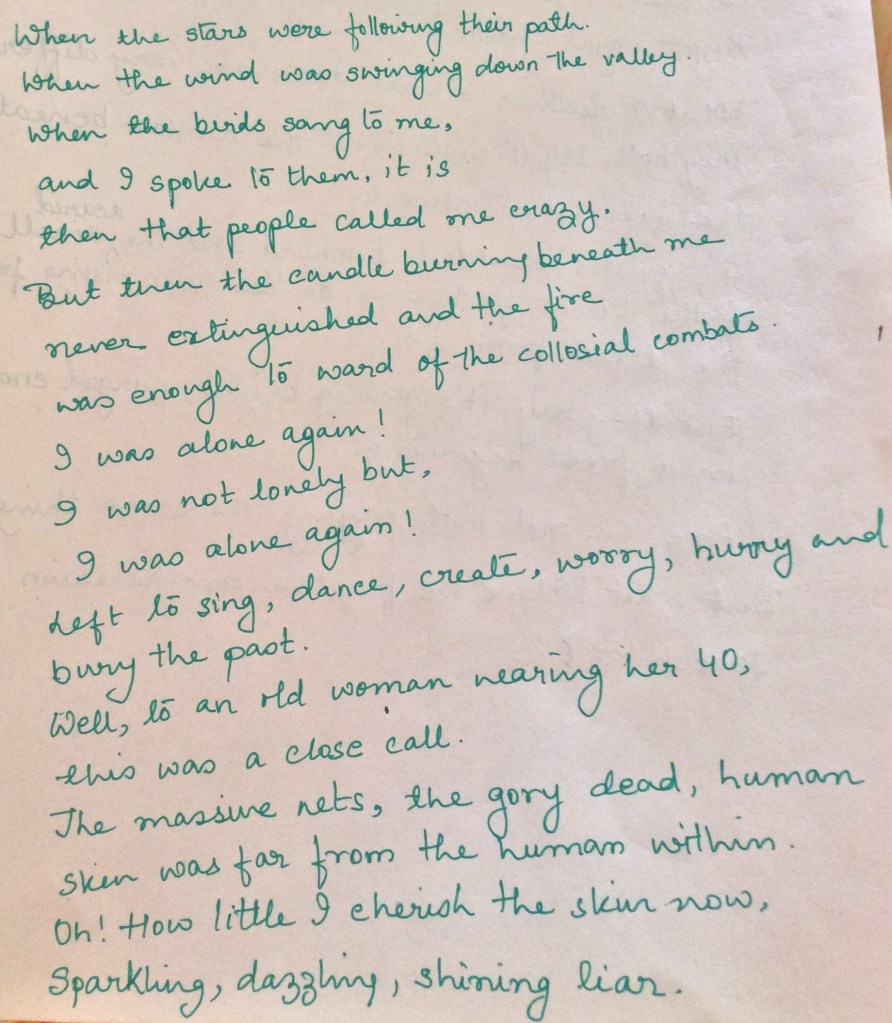 When the stars were following their path.
When the wind was swinging down the valley.
When the birds sang to me,
and I spoke to them, it is
then that people called me crazy.
But then the candle burning beneath me
never extinguished and the fire
was enough to ward of the collosial combats.
I was alone again!
I was not lonely but,
I was alone again!
Left to sing, dance, create, worry, hurry and
bury the past.
Well, to an old woman nearing her 40,
this was a close call.
The massive nets, the gory dead, human
skin was far from the human within.
Oh! How little I cherish the skin now,
Sparkling, dazzling, shining liar.